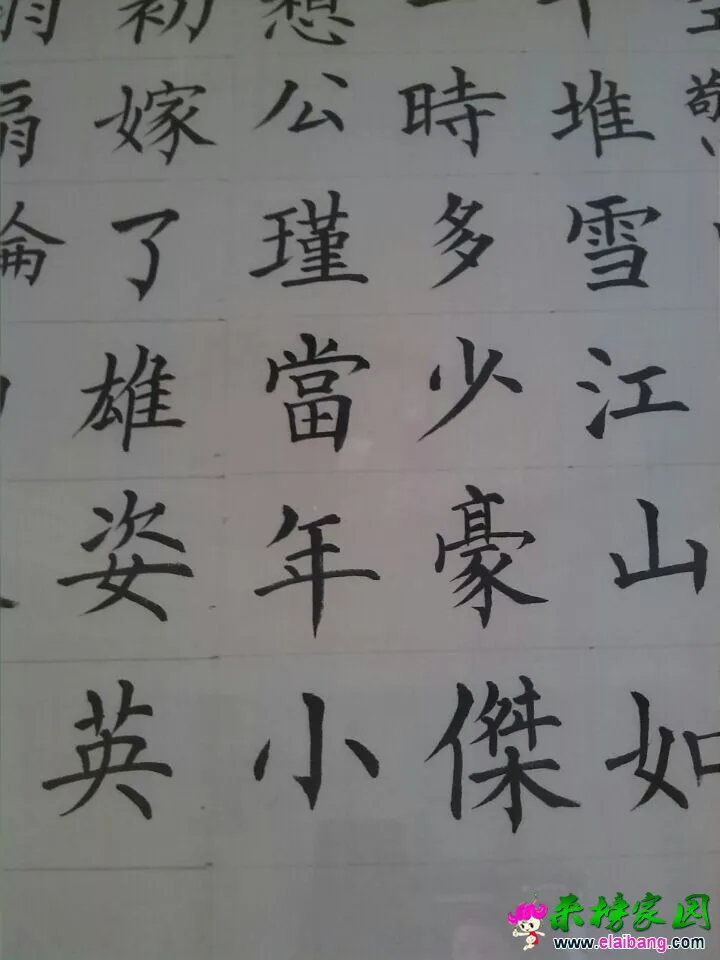 千堆雪江山如
一時多少豪傑
想公瑾當年小
初嫁了雄姿英
来榜家园
www.elaibang.com